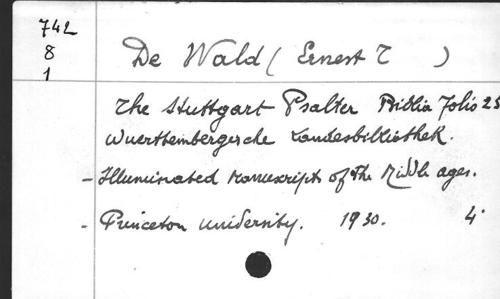 742
8
1
De Wald (Ernest T )
The Stuttgart Psalter Biblia folio 23
Wuerttembergersche Landesbibliothek.
- Illuminated manuscripts of the Middle ages.
- Princeton University. 1930. 4°